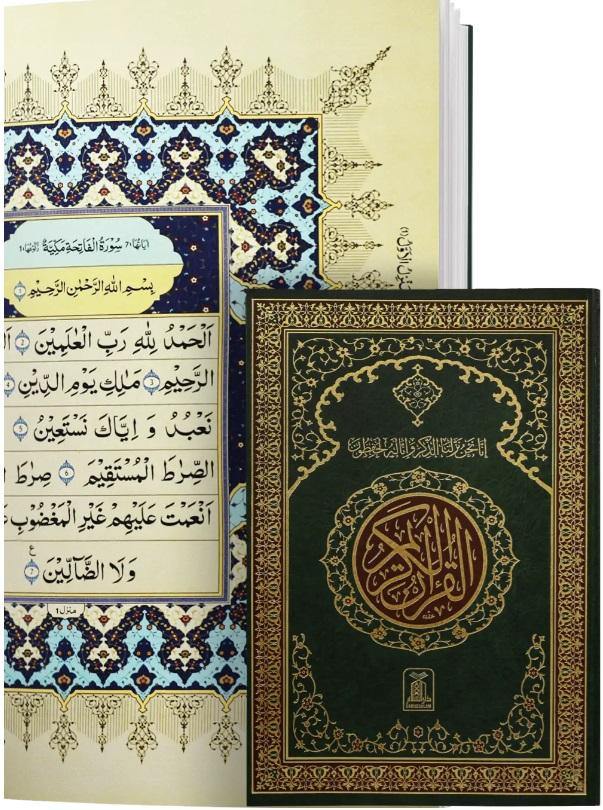 اٰيَاتُهَا ٧ سُوْرَةُ الْفَاتِحَةِ مَكِّيَّةٌ رُكُوْعُهَا ١
بِسْمِ اللّٰهِ الرَّحْمٰنِ الرَّحِيْمِ ١
اَلْحَمْدُ لِلّٰهِ رَبِّ الْعٰلَمِيْنَ ٢
الرَّحِيْمِ ٣ مٰلِكِ يَوْمِ الدِّيْنِ ٤
نَعْبُدُ وَ اِيَّاكَ نَسْتَعِيْنُ ٥
الصِّرٰطَ الْمُسْتَقِيْمَ ٦ صِرٰطَ
اَنْعَمْتَ عَلَيْهِمْ غَيْرِ الْمَغْضُوْبِ
وَلَا الضَّآلِّيْنَ ٧ ع
منزل ١
إنا نحن نزلنا الذكر وإنا له لحفظون
القرآن الكريم
دار السلام